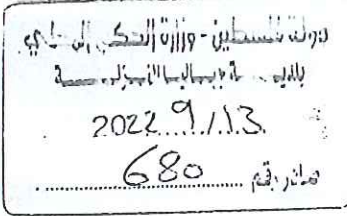 دولة فلسطين - وزارة الحكم المحلي
بلدية
2022 9/13
صادر رقم 680